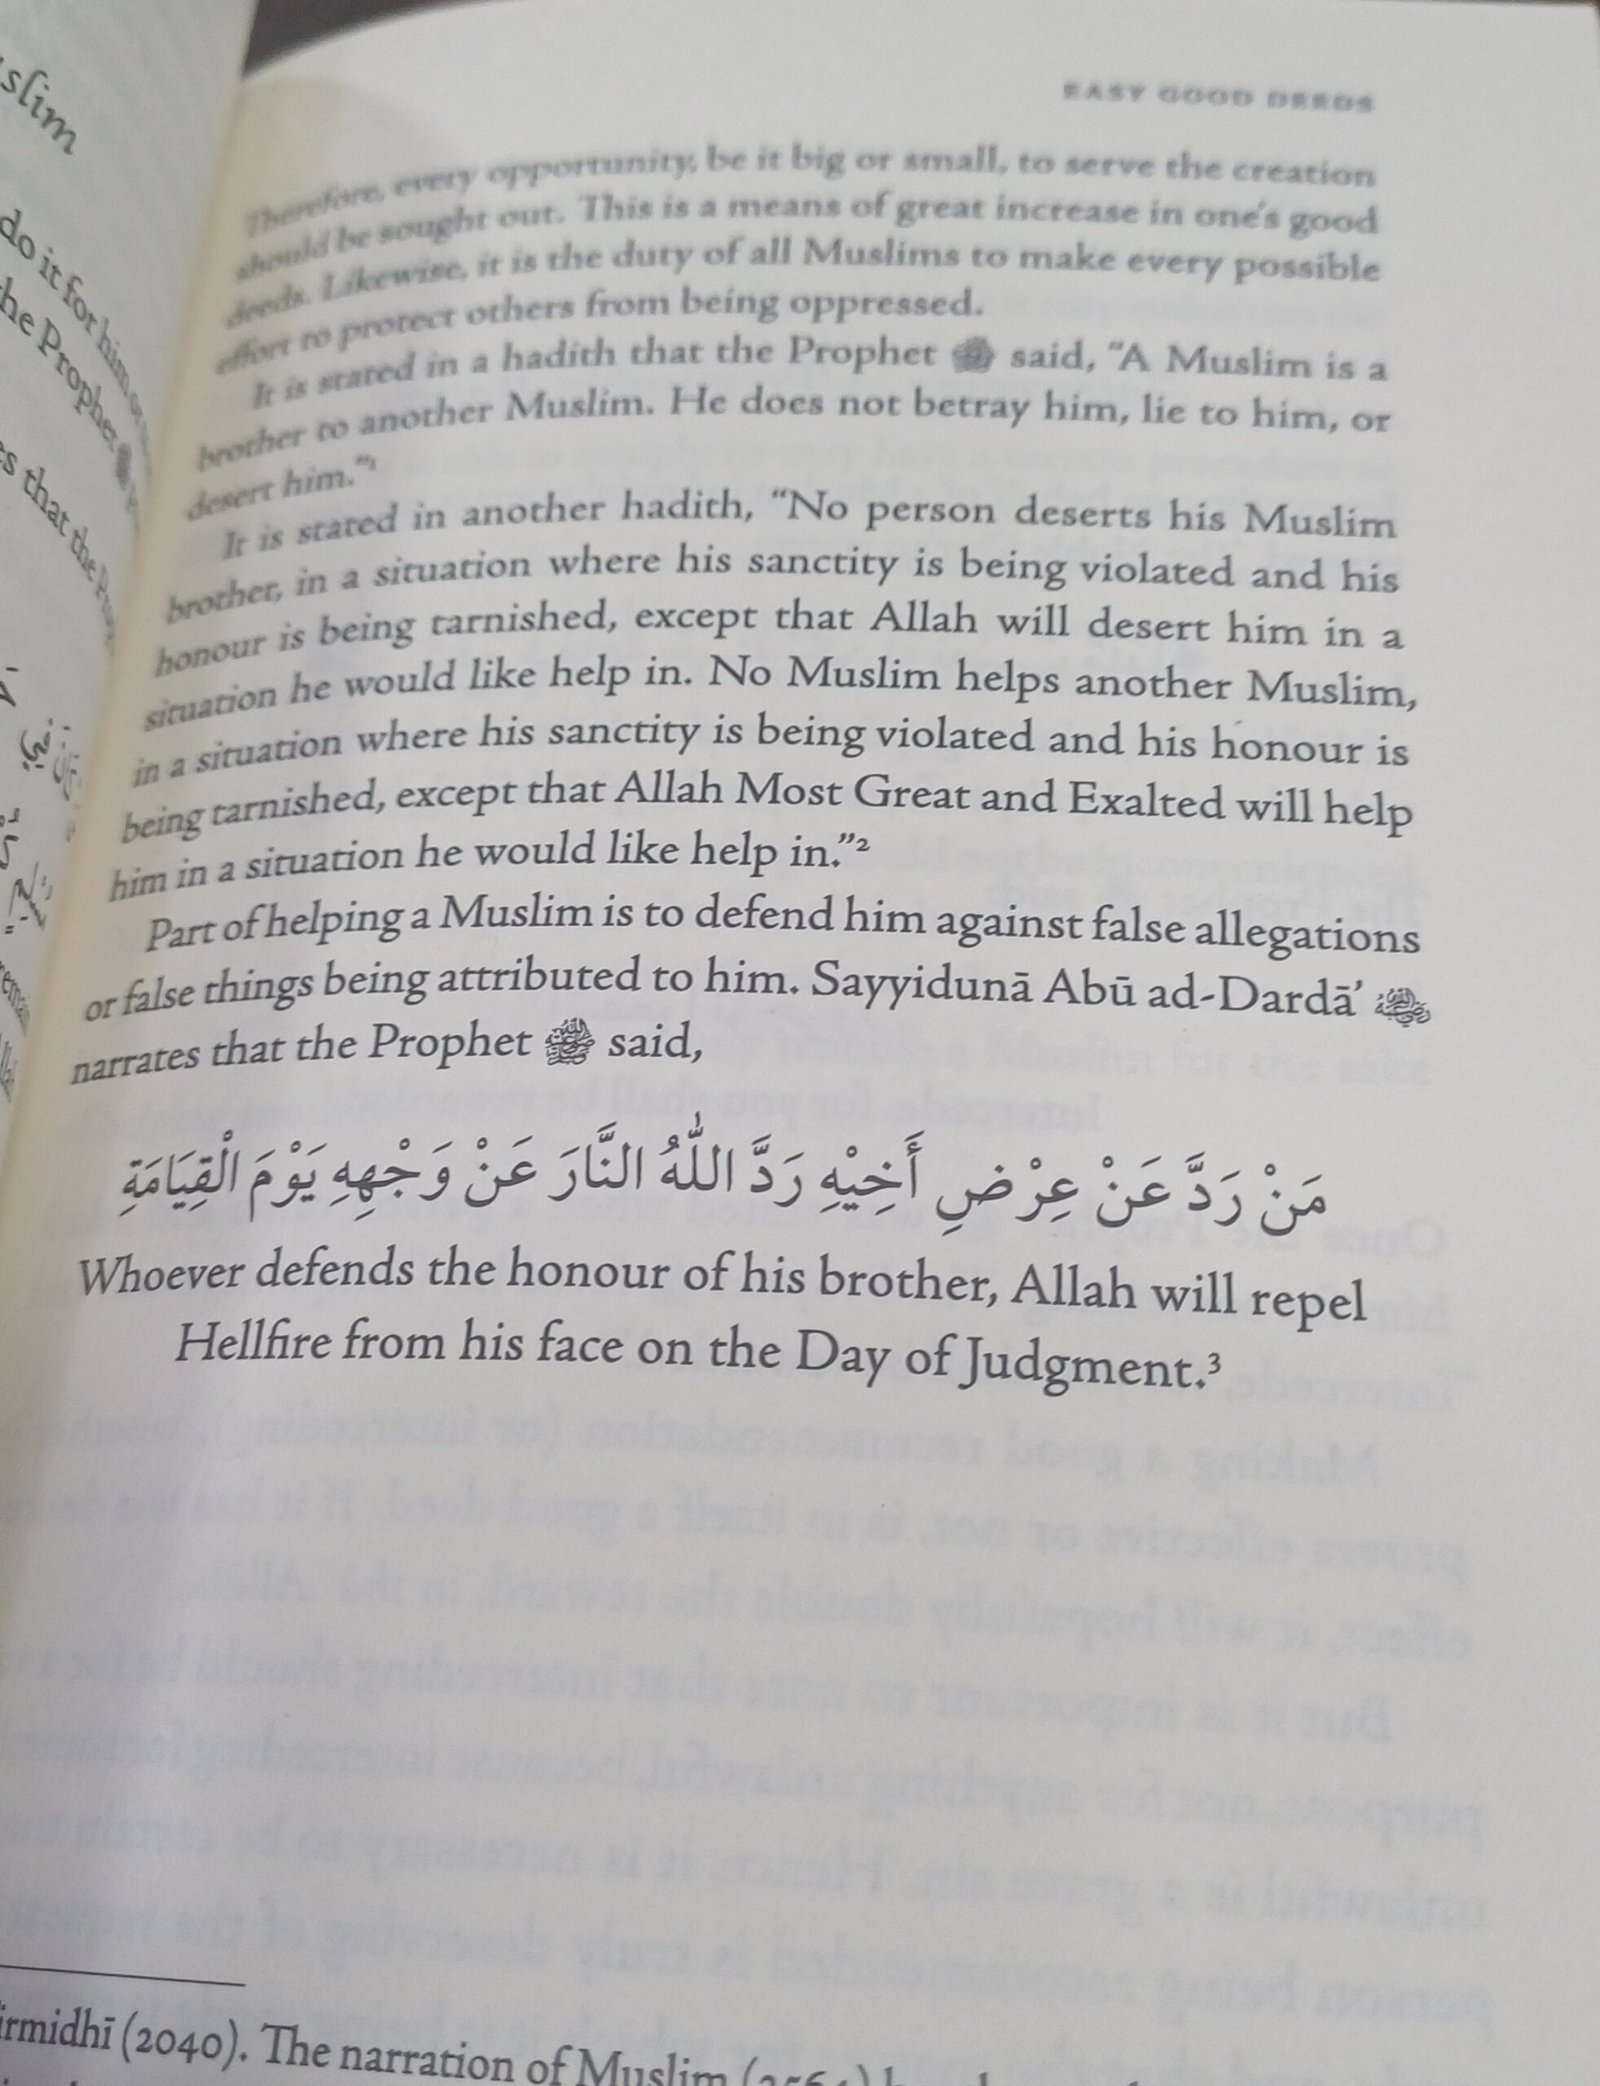 slim
do it for him
the Prophet
es that the
EASY GOOD DEEDS
Therefore, every opportunity, be it big or small, to serve the creation
should be sought out. This is a means of great increase in one's good
deeds. Likewise, it is the duty of all Muslims to make every possible
effort to protect others from being oppressed.
It is stated in a hadith that the Prophet ﷺ said, “A Muslim is a
brother to another Muslim. He does not betray him, lie to him, or
desert him.”¹
It is stated in another hadith, “No person deserts his Muslim
brother, in a situation where his sanctity is being violated and his
honour is being tarnished, except that Allah will desert him in a
situation he would like help in. No Muslim helps another Muslim,
in a situation where his sanctity is being violated and his honour is
being tarnished, except that Allah Most Great and Exalted will help
him in a situation he would like help in.”²
Part of helping a Muslim is to defend him against false allegations
or false things being attributed to him. Sayyidunā Abū ad-Dardā’ رضي الله عنه
narrates that the Prophet ﷺ said,
مَنْ رَدَّ عَنْ عِرْضِ أَخِيْهِ رَدَّ اللّٰهُ النَّارَ عَنْ وَجْهِهِ يَوْمَ الْقِيَامَةِ
Whoever defends the honour of his brother, Allah will repel
Hellfire from his face on the Day of Judgment.³
irmidhī (2040). The narration of Muslim (2564)